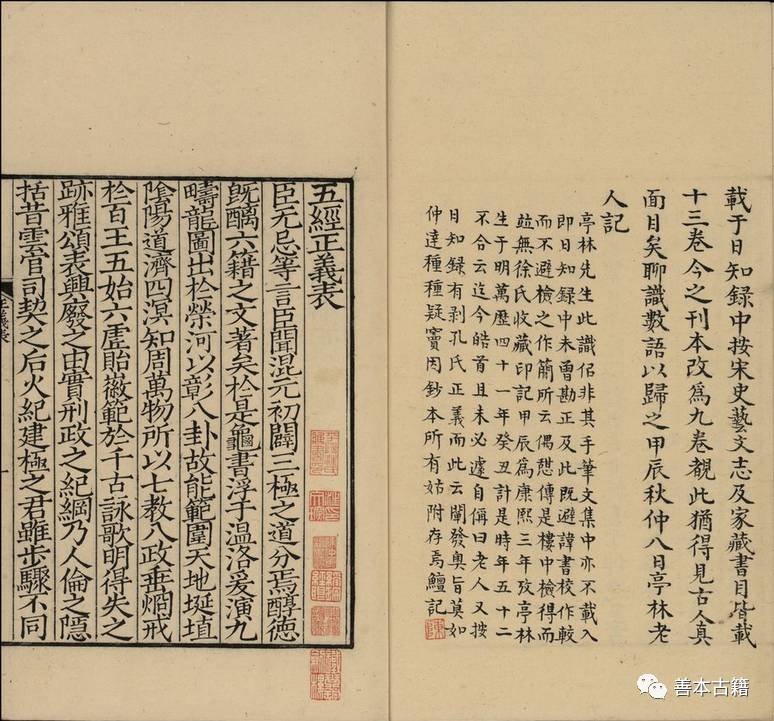 載于日知録中按宋史藝文志及家藏書目皆載
十三卷今之刊本改爲九卷覩此猶得見古人真
面目矣聊識數語以歸之甲辰秋仲八日亭林老
人記
亭林先生此識似非其手筆文集中亦不載入
即日知録中未曾勘正及此既避諱書校作較
而不避檢之作簡所云偶憇傳是樓中檢得而
竝無徐氏收藏印記甲辰爲康熙三年攷亭林
生于明萬歷四十一年癸丑計是時年五十二
不合云迄今皓首且未必遽自偁曰老人又按
日知録有剥孔氏正義而此云闡發奥旨莫如
仲達種種疑竇因鈔本所有姑附存焉鱣記
五經正義表
臣无忌等言臣聞混元初闢三極之道分焉醇德
旣醨六籍之文著矣於是龜書浮于温洛爰演九
疇龍圖出於榮河以彰八卦故能範圍天地埏埴
陰陽道濟四溟知周萬物所以七教八政垂烱戒
於百王五始六虛貽徽範於千古詠歌明得失之
跡雅頌表興廢之由實刑政之紀綱乃人倫之隱
括昔雲官司契之后火紀建極之君雖步驟不同
善本古籍